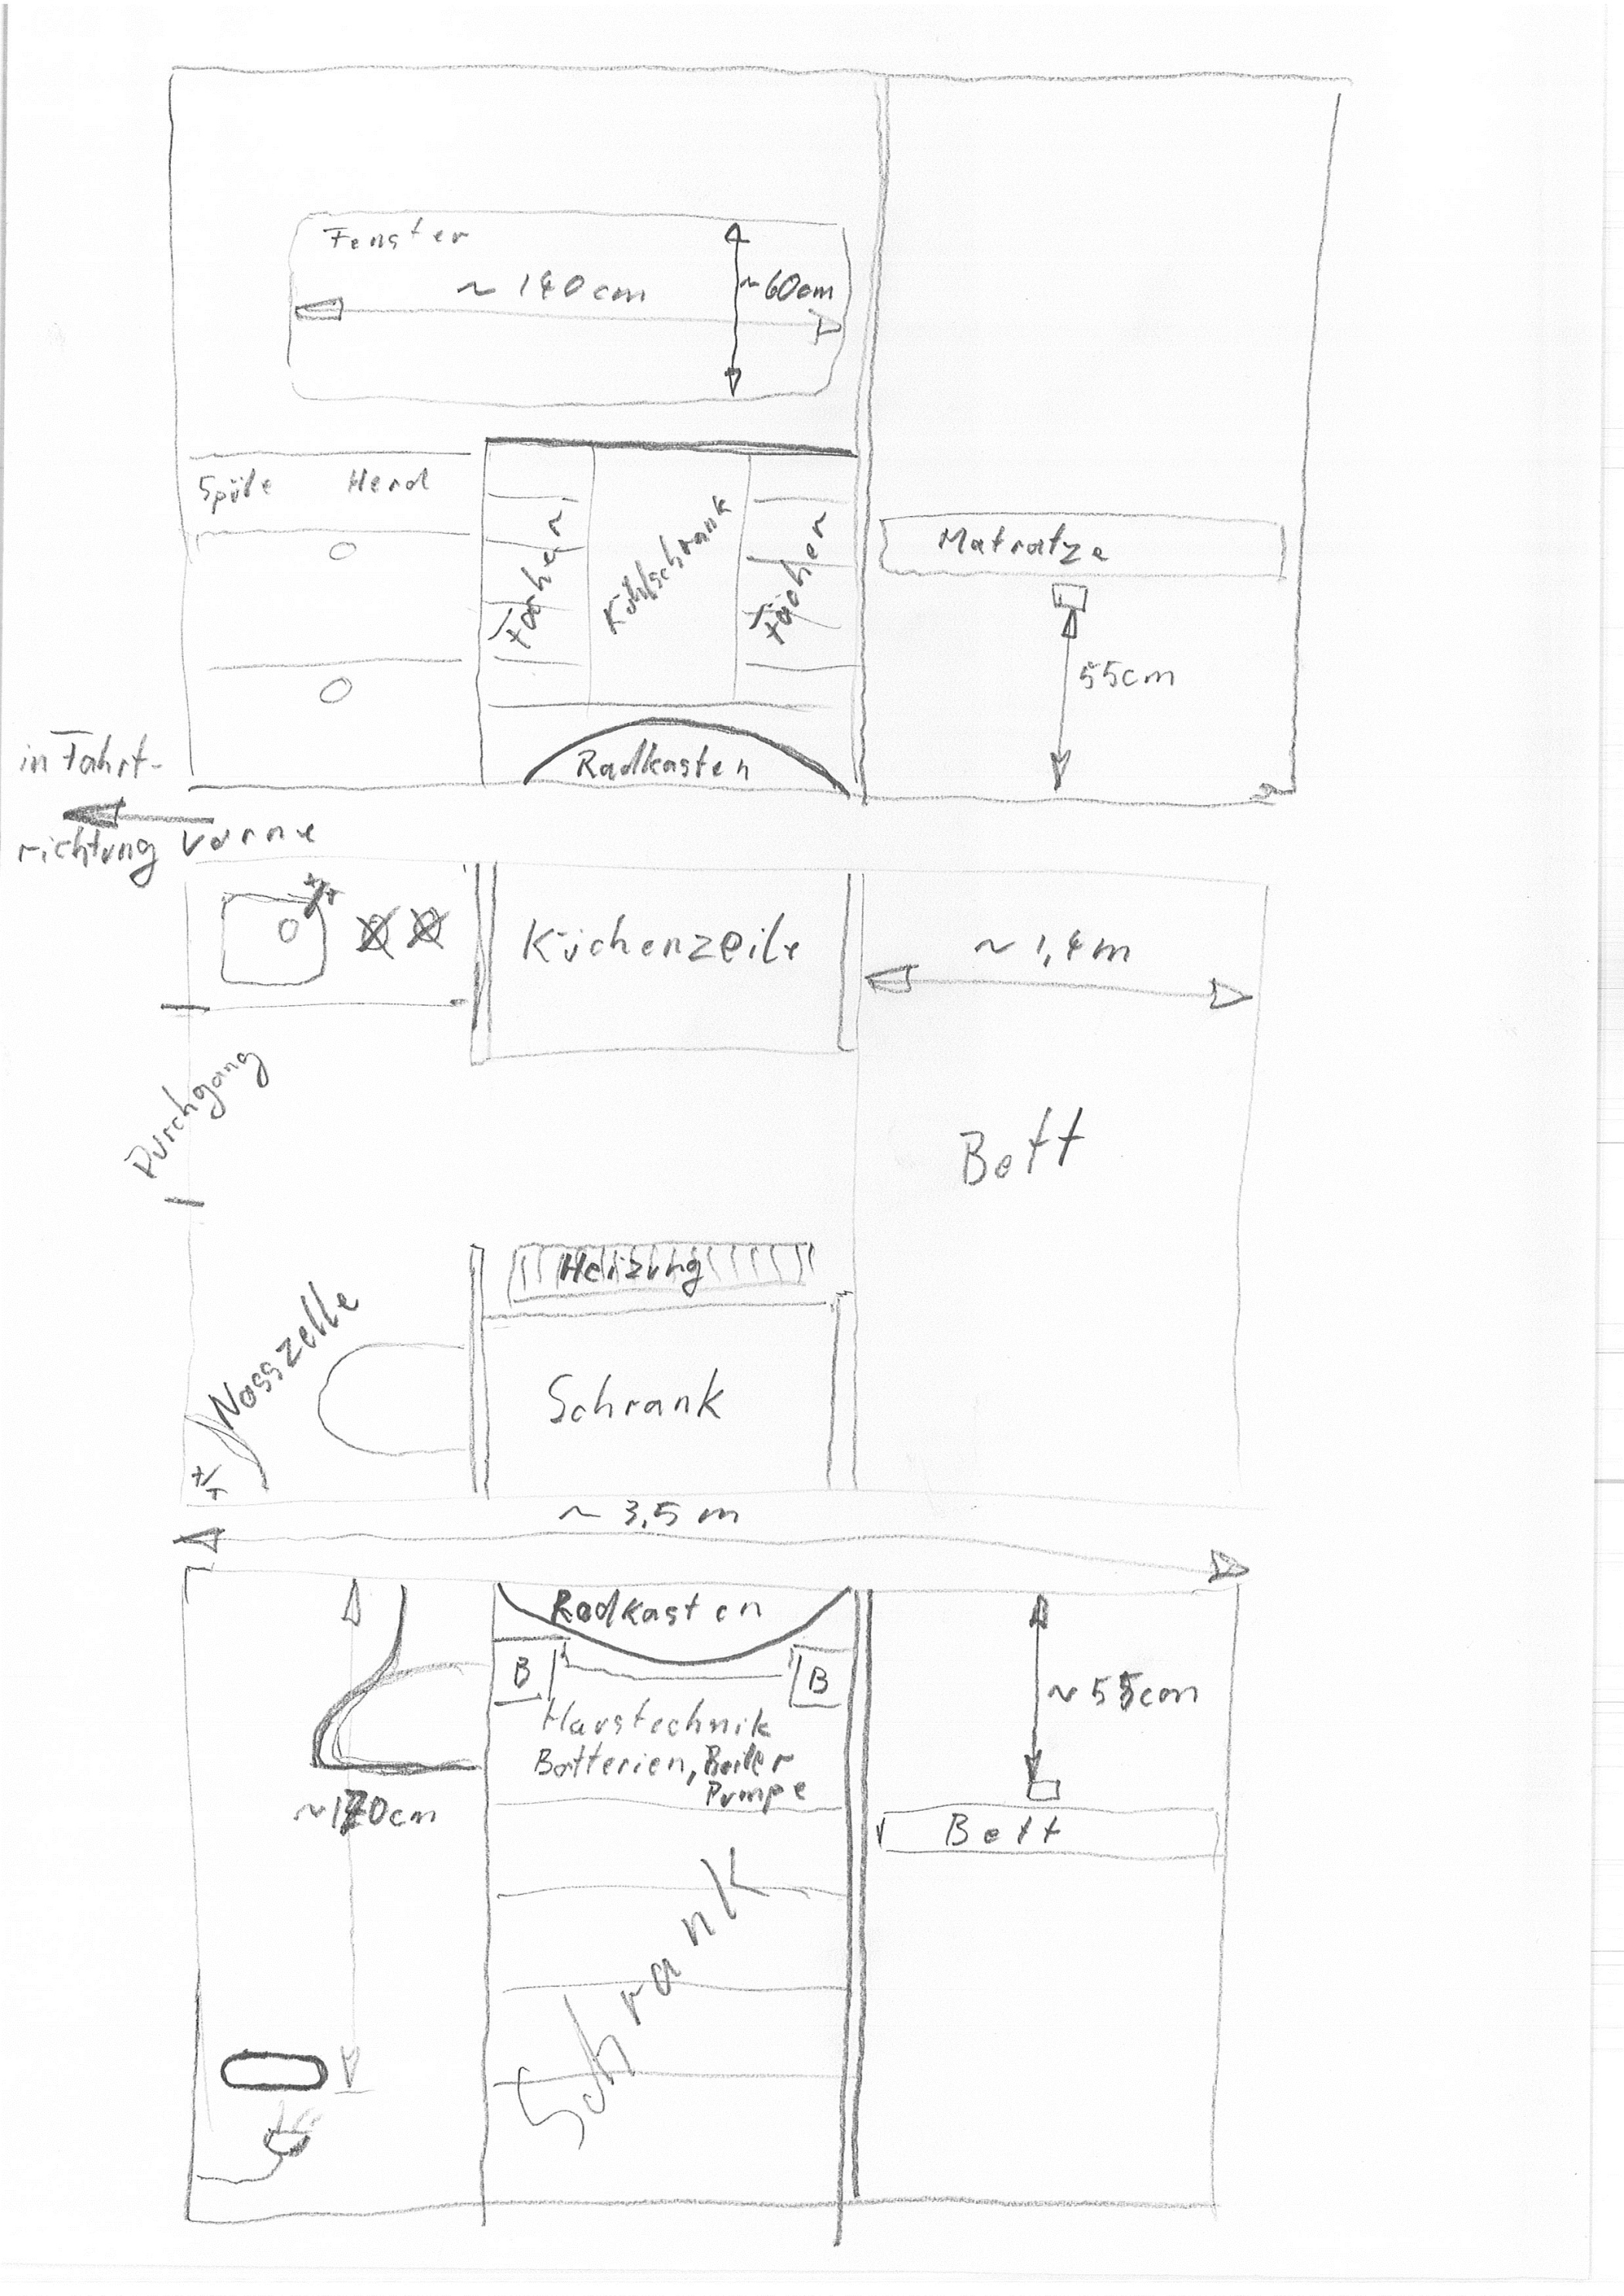 Fenster
~ 140cm
~60cm
Spüle Herd
Fächer
Kühlschrank
Fächer
Matratze
55cm
Radkasten
in Fahrt-
richtung vorne
Küchenzeile
~ 1,4m
Durchgang
Bett
Heizung
Nasszelle
Schrank
~ 3,5 m
Radkasten
B
B
~55cm
Haustechnik
Batterien, Boiler
Pumpe
~170cm
Bett
Schrank